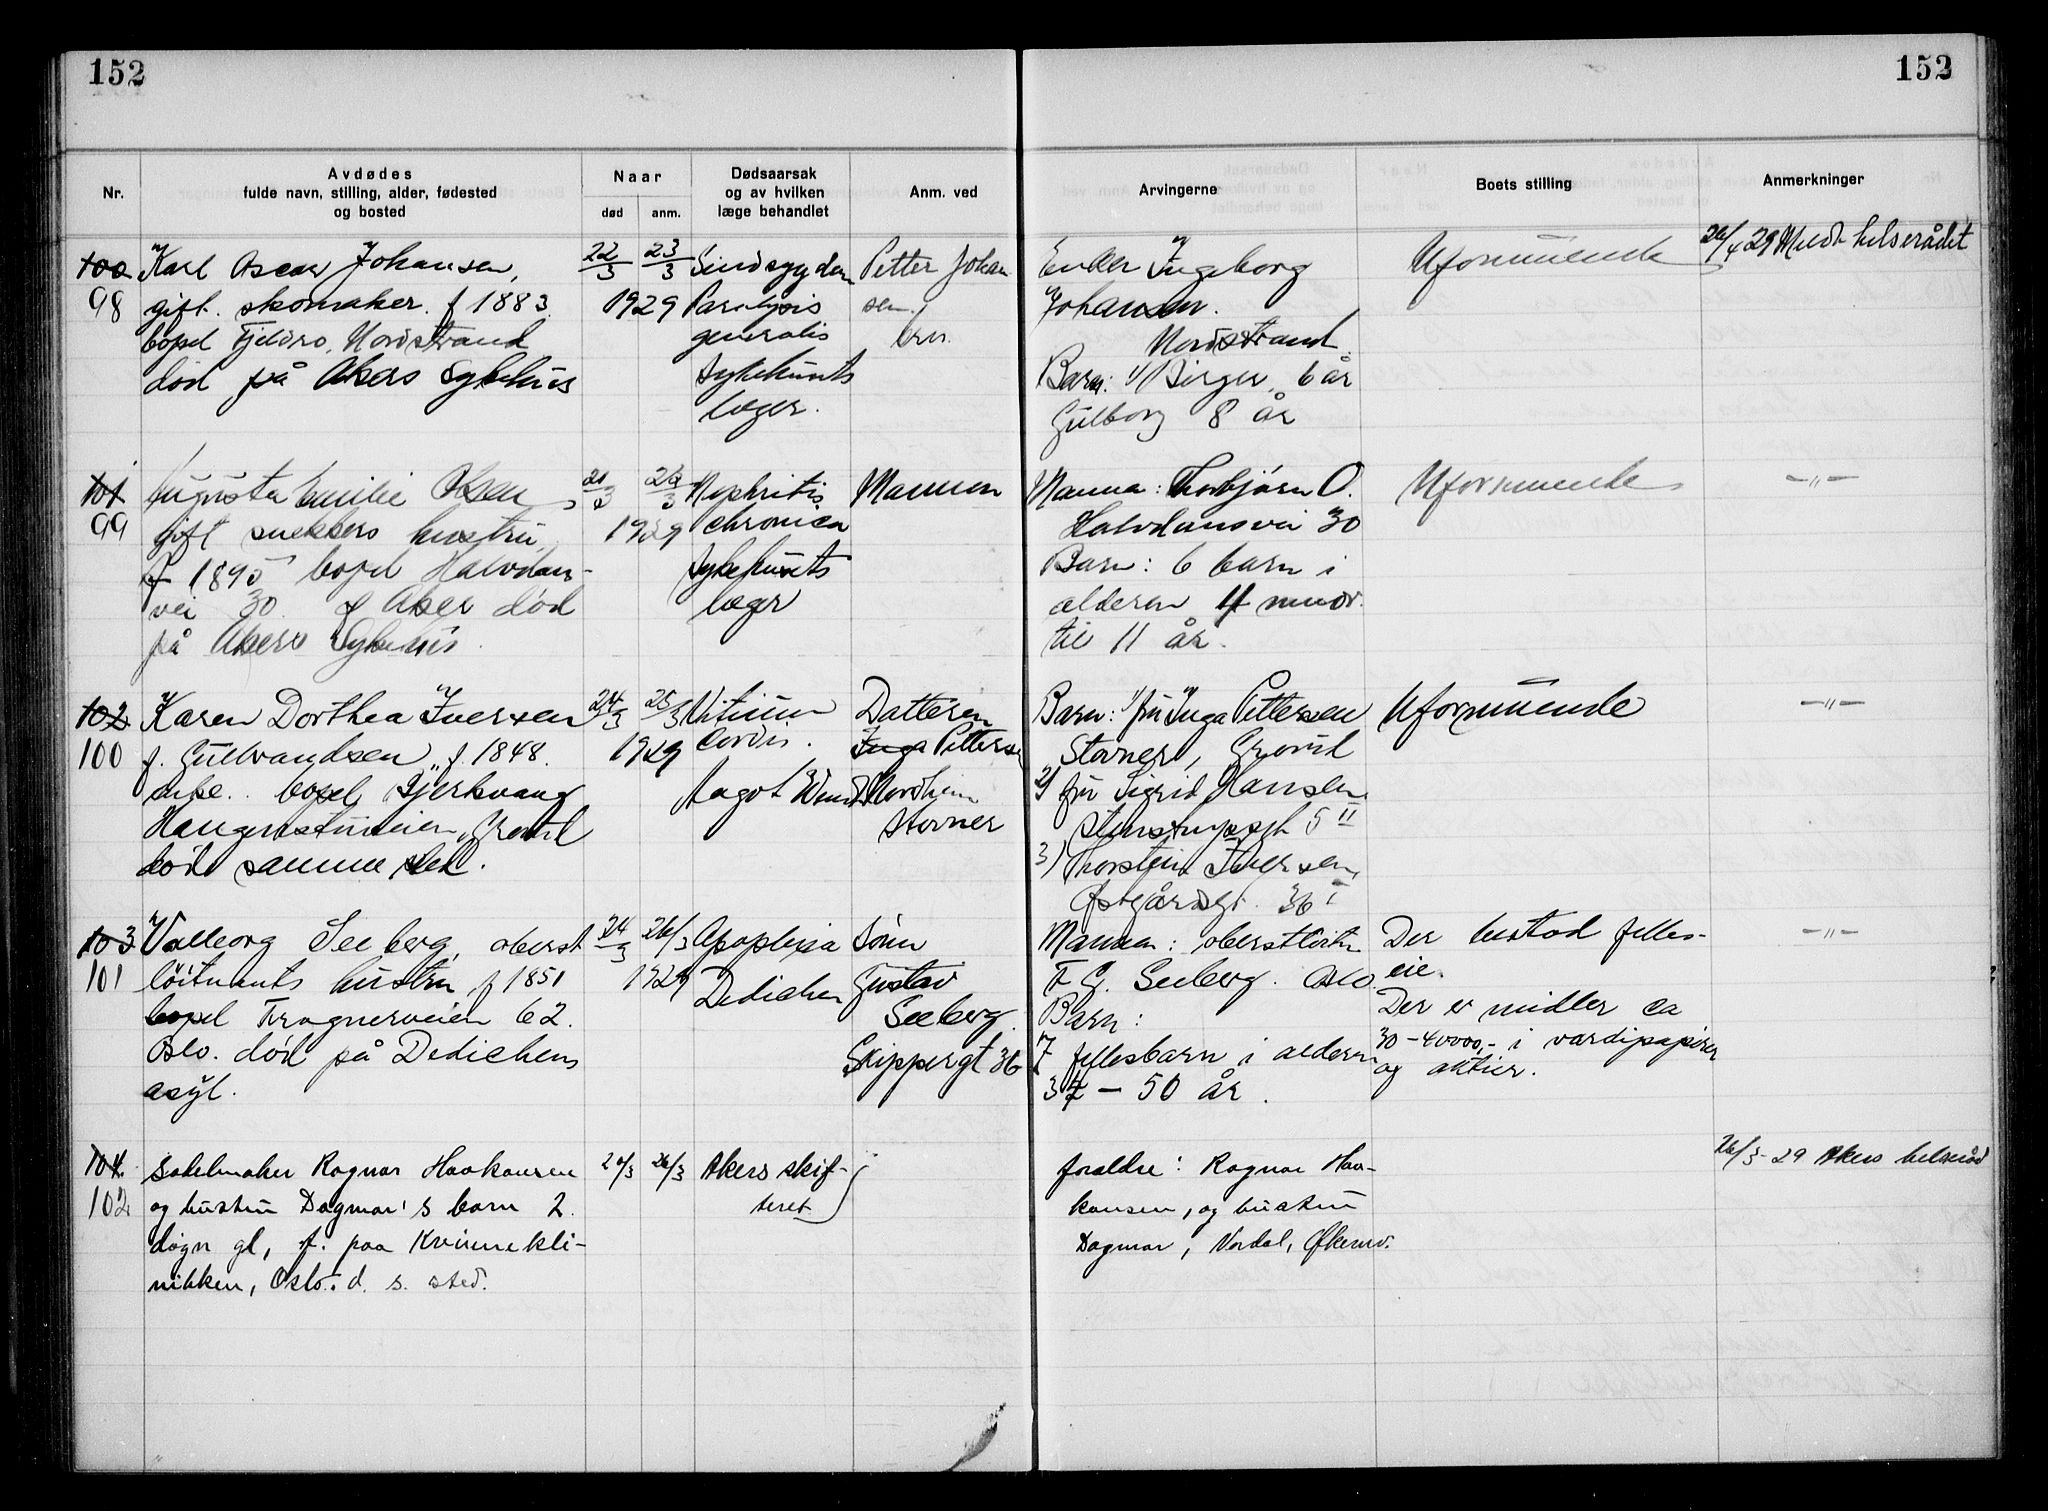 152
152
Nr.
Avdødes
fulde navn, stilling, alder, fødested
og bosted
Naar
død
anm.
Dødsaarsak
og av hvilken
læge behandlet
Anm. ved
Arvingerne
Boets stilling
Anmerkninger
100 Karl Oscar Johansen,
98 gift. skomaker. f 1883.
bopel Fjeldro, Nordstrand
død på Akers Sykehus
22/3 23/3
1929
Sindssygdom
Paralysis
generalis
Sykehusets
læger.
Petter Johan
sen,
bror.
Enke: Ingeborg
Johansen.
Nordstrand.
Barn: 1/ Birger, 6 år
Gulborg 8 år
Uformuende
26/4 29 Medt helserådet
101 Augusta Emilie Olsen
99 gift snekkers hustru,
f 1895 bopel Halvdans-
vei 30. f Aker død
på Akers Sykehus.
21/3 23/3
1929
Nephritis
chronica
Sykehusets
læger
Mannen
Manna: Thorbjørn O.
Halvdansvei 30
Barn: 6 barn i
alderen 4 mndr.
til 11 år.
Uformuende
—"—
102 Karen Dorthea Iversen
100 f. Gulbrandsen, f. 1848.
enke. bopel Bjerkvang
Haugenstuveien, Grorud
død samme sted.
24/3 25/3
1929
Vitium
cordis.
Aagot Wind
Datteren
Inga Petterse
Nordheim
Stovner
Barn: 1/ fru Inga Pettersen
Stovner, Grorud
2) fru Sigrid Hansen
Stenstrupsgt 5 II
3) Thorstein Iversen,
Østgårdsgt. 36 I
Uformuende
—"—
103 Valborg Seeberg, oberst
101 løitnants hustru f 1851
bopel Frognerveien 62.
Oslo. død på Dedichens
asyl.
24/3 26/3
1929
Apoplexia
Dedichen
Sønn
Gustav
Seeberg.
Skippergt 36
Mannen: oberstløitn.
F. G. Seeberg. Oslo.
Barn:
7 fellesbarn i alderen
37 — 50 år.
Der bestod felles-
eie.
Der er midler ca
30-40000,- i værdipapirer
og aktier.
—"—
104. Sadelmaker Ragnar Haakonsen
102 og hustru Dagmar's barn 2
døgn gl, f. paa Kvinnekli-
nikken, Oslo. d. s. sted.
20/3 26/3
Akers skif-
teret
foreldre: Ragnar Haa-
konsen, og hustru
Dagmar, Nordal, Økernv.
26/3-29 Akers helseråd